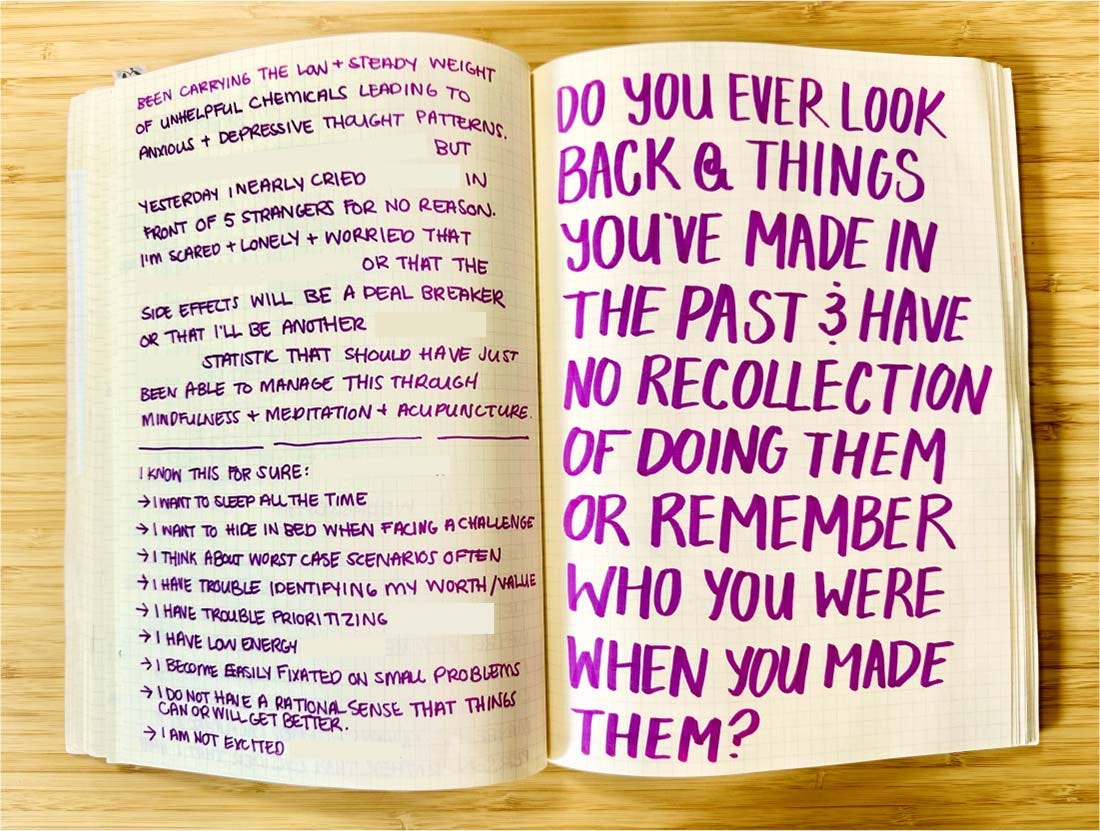 BEEN CARRYING THE LOW + STEADY WEIGHT
OF UNHELPFUL CHEMICALS LEADING TO
ANXIOUS + DEPRESSIVE THOUGHT PATTERNS.
BUT
YESTERDAY I NEARLY CRIED IN
FRONT OF 5 STRANGERS FOR NO REASON.
I'M SCARED + LONELY + WORRIED THAT
OR THAT THE
SIDE EFFECTS WILL BE A DEAL BREAKER
OR THAT I'LL BE ANOTHER
STATISTIC THAT SHOULD HAVE JUST
BEEN ABLE TO MANAGE THIS THROUGH
MINDFULNESS + MEDITATION + ACUPUNCTURE.
I KNOW THIS FOR SURE:
→ I WANT TO SLEEP ALL THE TIME
→ I WANT TO HIDE IN BED WHEN FACING A CHALLENGE
→ I THINK ABOUT WORST CASE SCENARIOS OFTEN
→ I HAVE TROUBLE IDENTIFYING MY WORTH/VALUE
→ I HAVE TROUBLE PRIORITIZING
→ I HAVE LOW ENERGY
→ I BECOME EASILY FIXATED ON SMALL PROBLEMS
→ I DO NOT HAVE A RATIONAL SENSE THAT THINGS
CAN OR WILL GET BETTER.
→ I AM NOT EXCITED
DO YOU EVER LOOK
BACK @ THINGS
YOU'VE MADE IN
THE PAST & HAVE
NO RECOLLECTION
OF DOING THEM
OR REMEMBER
WHO YOU WERE
WHEN YOU MADE
THEM?